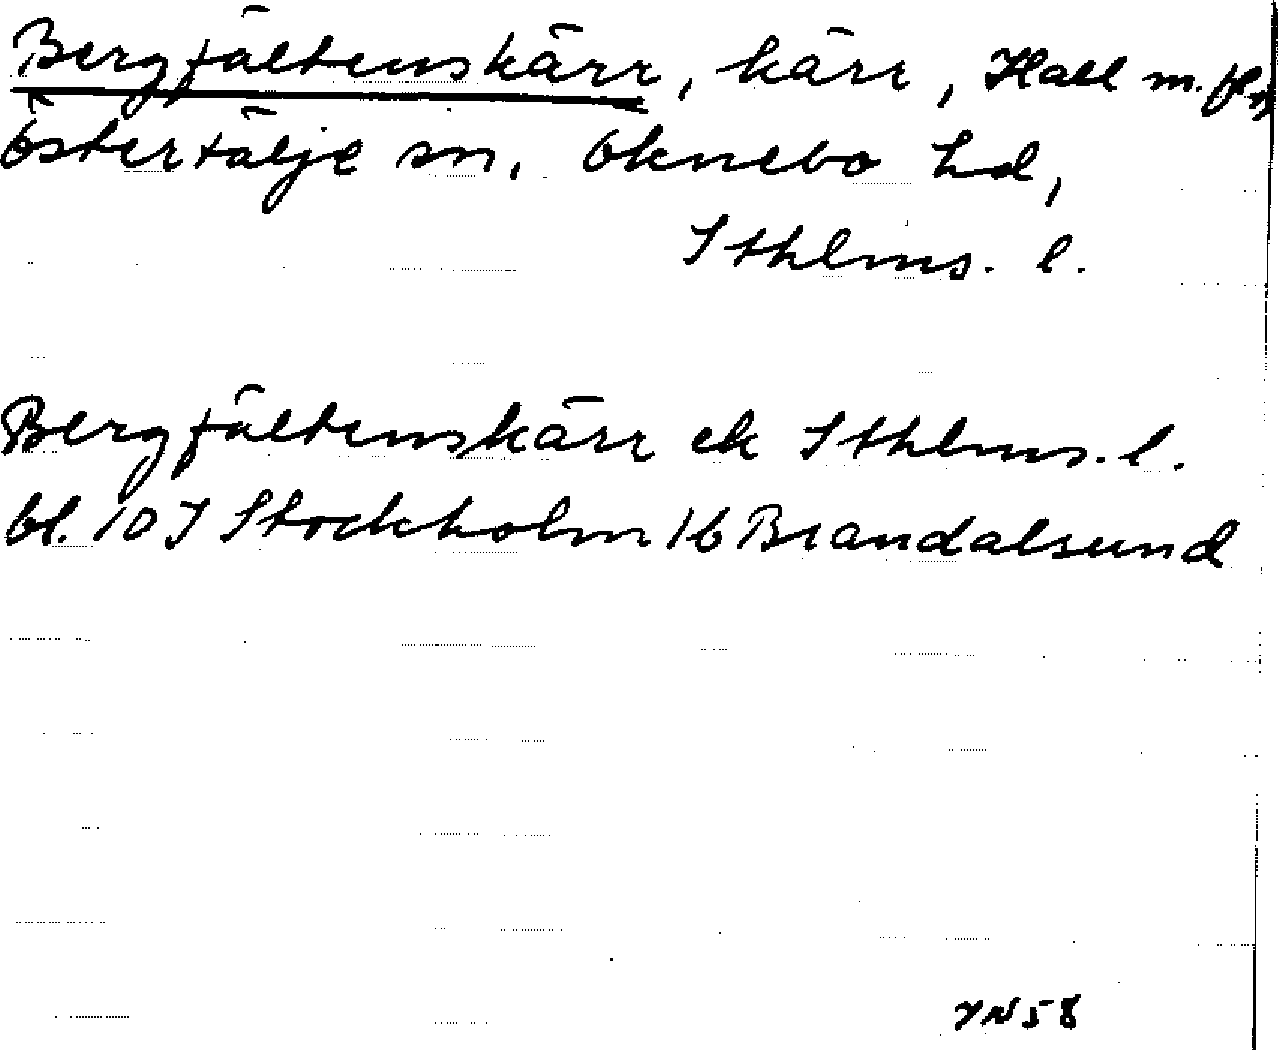 Bergfältenskärr, kärr, Hall m. fl.
Östertälje sn, Öknebo hd,
Sthlms. l.
Bergfältenskärr ek Sthlms. l.
bl. 10 I Stockholm 16 Brandalsund
YN58